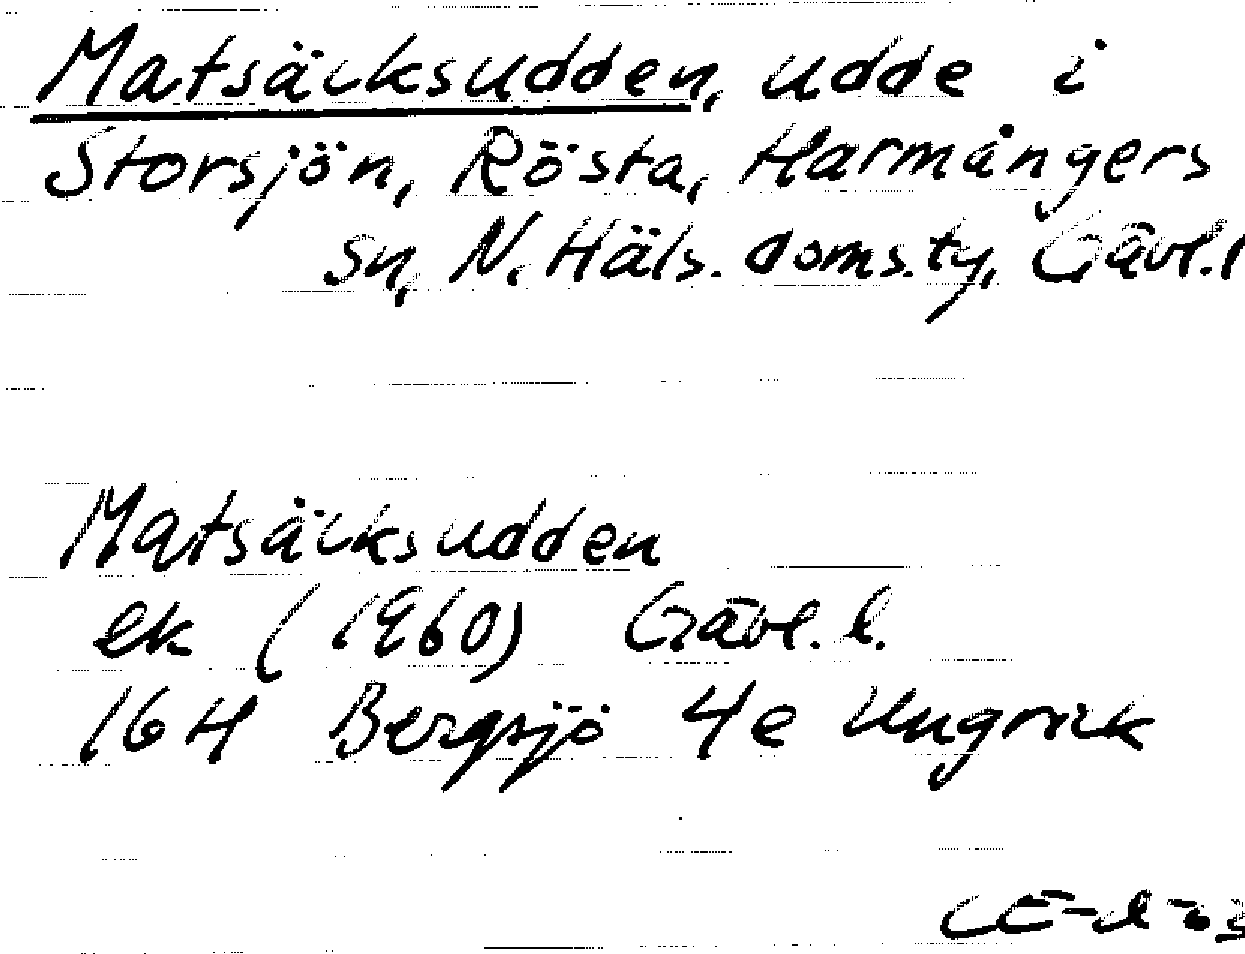 Matsäcksudden, udde i
Storsjön, Rösta, Harmångers
sn, N. Häls. doms.ty, Gävl.l
Matsäcksudden
ek (1960) Gävl. l.
16 H Bergsjö 4e Ungrik